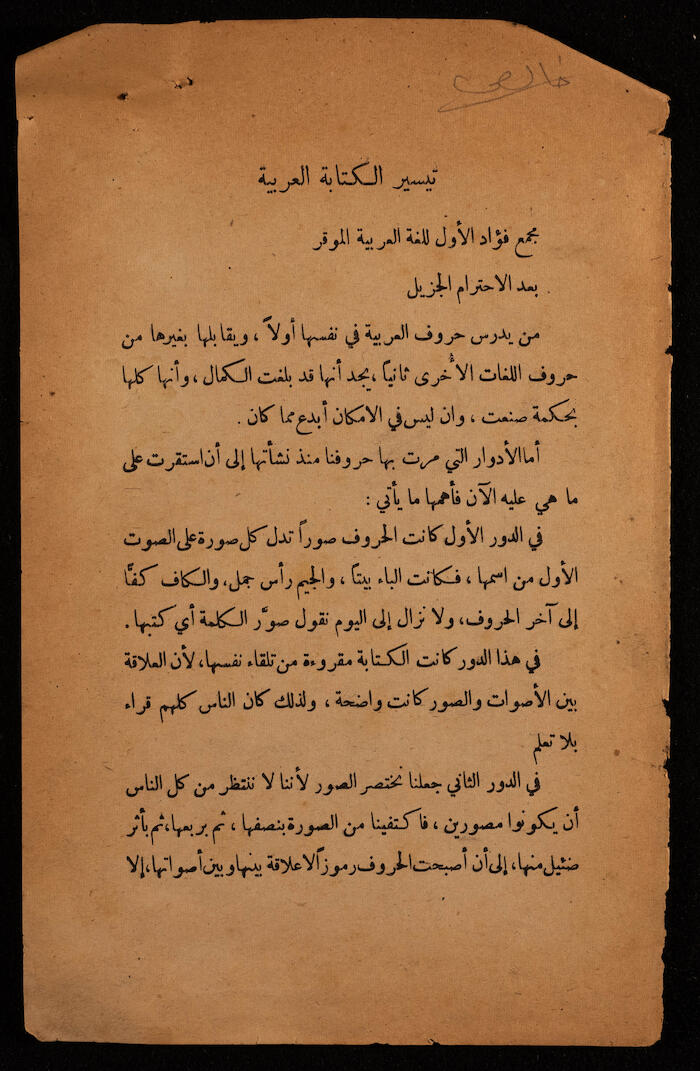 تيسير الكتابة العربية
مجمع فؤاد الأول للغة العربية الموقر
بعد الاحترام الجزيل
من يدرس حروف العربية في نفسها أولاً ، ويقابلها بغيرها من
حروف اللغات الأُخرى ثانياً ، يجد أنها قد بلغت الكمال ، وأنها كلها
بحكمة صنعت ، وان ليس في الامكان أبدع مما كان .
أما الأدوار التي مرت بها حروفنا منذ نشأتها إلى أن استقرت على
ما هي عليه الآن فأهمها ما يأتي :
في الدور الأول كانت الحروف صوراً تدل كل صورة على الصوت
الأول من اسمها ، فكانت الباء بيتاً ، والجيم رأس جمل، والكاف كفًّا
إلى آخر الحروف، ولا نزال إلى اليوم نقول صوَّر الكلمة أي كتبها .
في هذا الدور كانت الكتابة مقروءة من تلقاء نفسها، لأن العلاقة
بين الأصوات والصور كانت واضحة ، ولذلك كان الناس كلهم قراء
بلا تعلم
في الدور الثاني جعلنا نختصر الصور لأننا لا ننتظر من كل الناس
أن يكونوا مصورين ، فاكتفينا من الصورة بنصفها ، ثم بربعها، ثم بأثر
ضئيل منها، إلى أن أصبحت الحروف رموزاً لا علاقة بينها وبين أصواتها، إلا